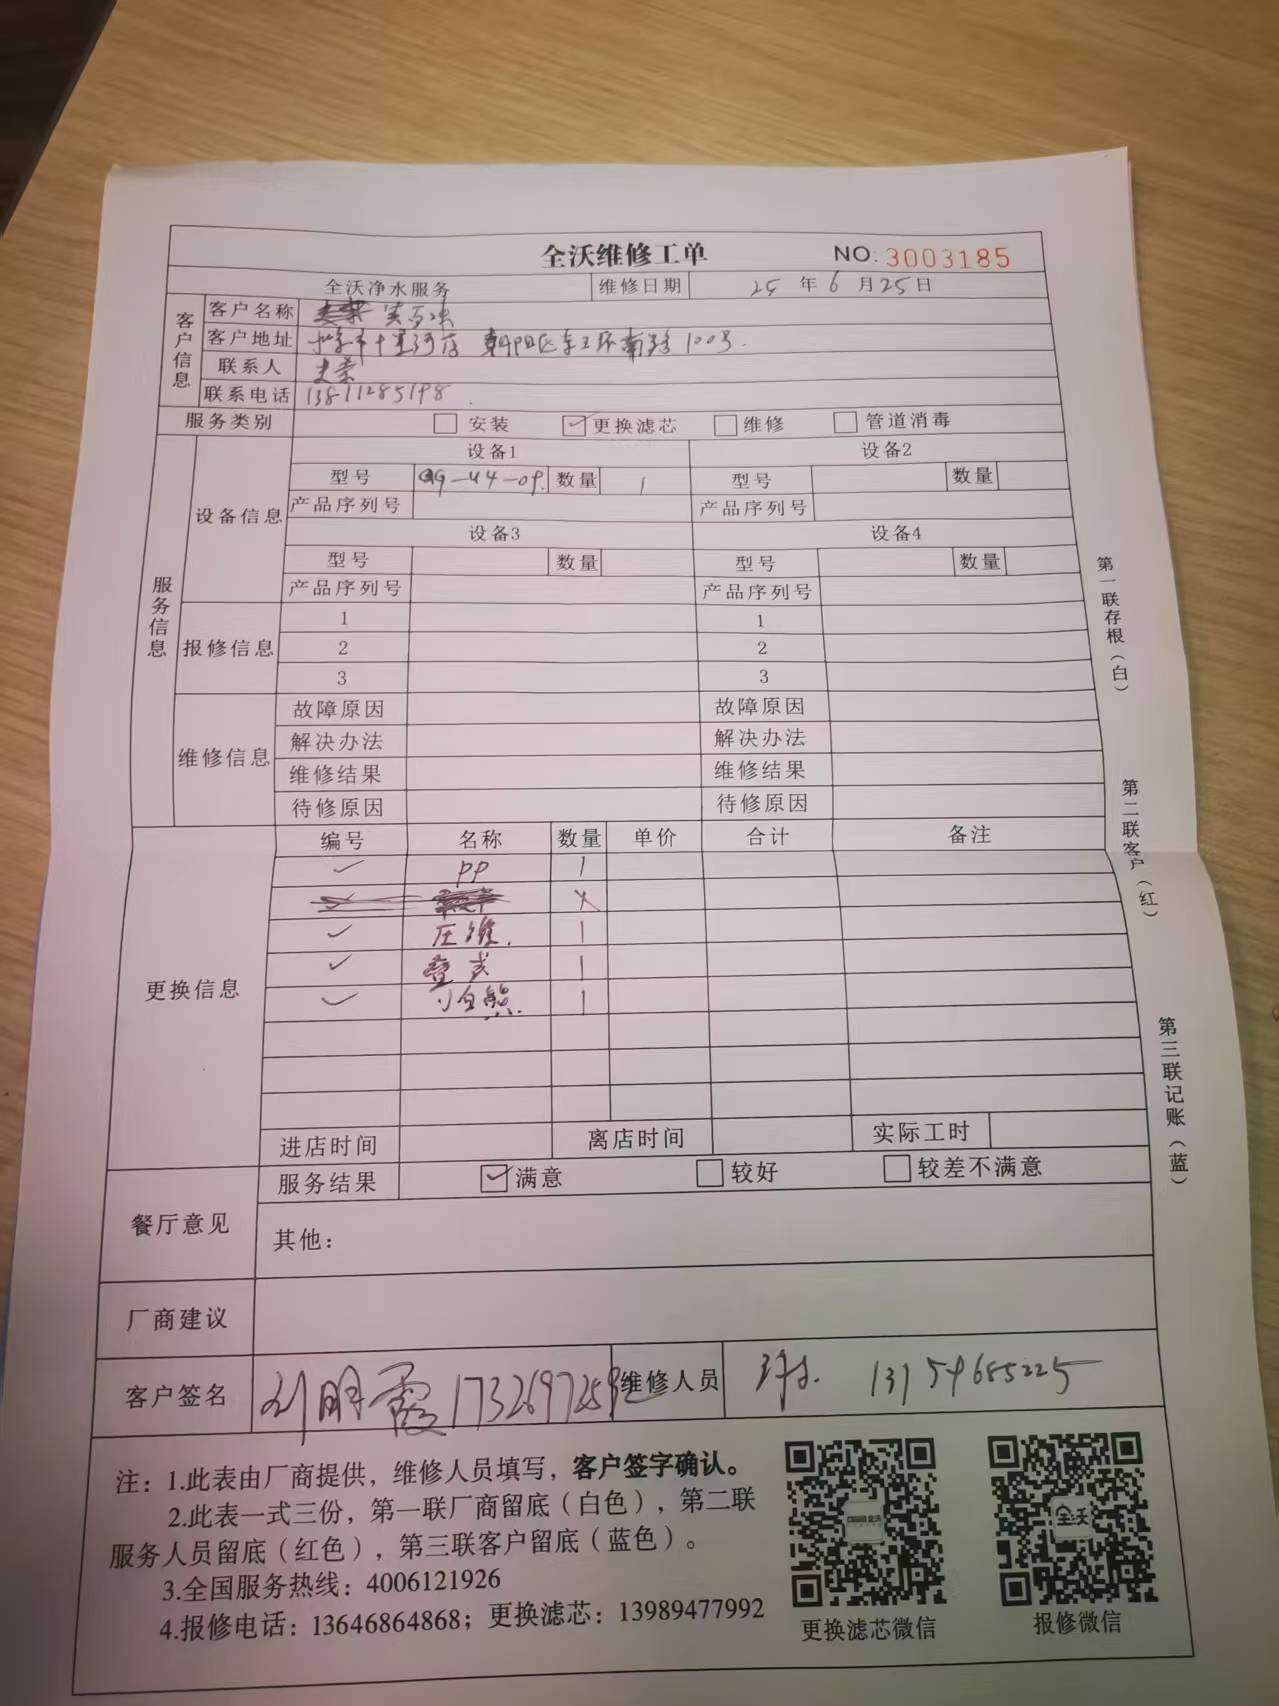 全沃维修工单 NO:3003185
全沃净水服务 维修日期 25 年 6 月 25 日
客户信息
客户名称
客户地址 十里河店 朝阳区东三环南路100号.
联系人
联系电话 13811285198
服务类别 安装 更换滤芯 维修 管道消毒
服务信息
设备信息
设备1 设备2
型号 数量 1 型号 数量
产品序列号 产品序列号
设备3 设备4
型号 数量 型号 数量
产品序列号 产品序列号
报修信息
1 1
2 2
3 3
维修信息
故障原因 故障原因
解决办法 解决办法
维修结果 维修结果
待修原因 待修原因
更换信息
编号 名称 数量 单价 合计 备注
PP 1
压缩. 1
1
小白熊. 1
进店时间 离店时间 实际工时
餐厅意见
服务结果 满意 较好 较差不满意
其他：
厂商建议
客户签名 刘明霞 维修人员 13154685225
第一联存根（白）
第二联客户（红）
第三联记账（蓝）
注：1.此表由厂商提供，维修人员填写，客户签字确认。
2.此表一式三份，第一联厂商留底（白色），第二联
服务人员留底（红色），第三联客户留底（蓝色）。
3.全国服务热线：4006121926
4.报修电话：13646864868；更换滤芯：13989477992
更换滤芯微信 报修微信